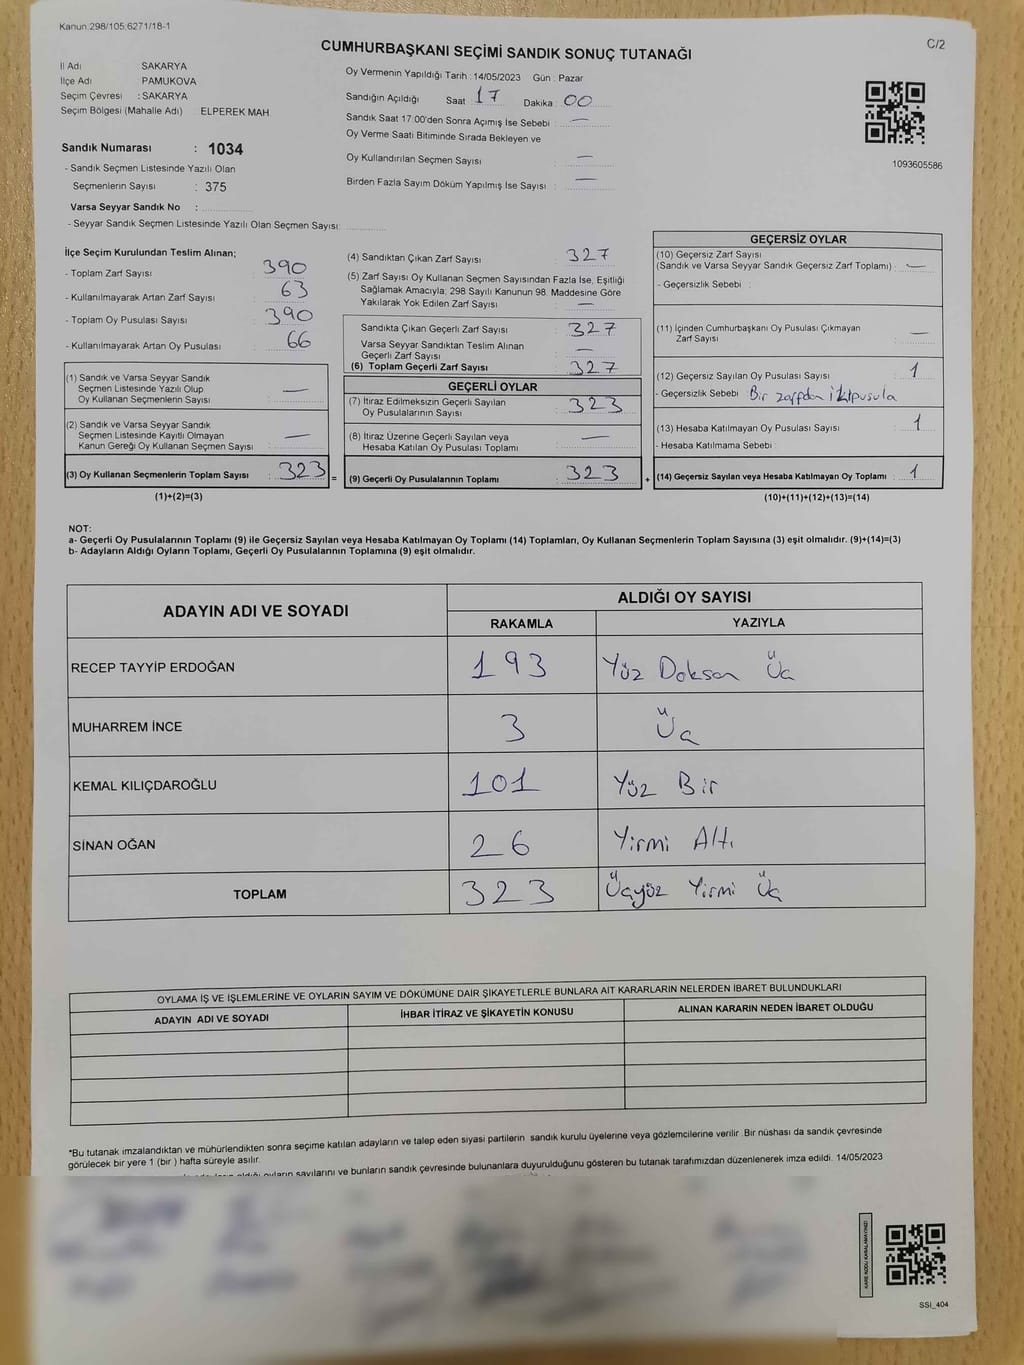 Kanun:298/105;6271/18-1
C/2
CUMHURBAŞKANI SEÇİMİ SANDIK SONUÇ TUTANAĞI
İl Adı SAKARYA
İlçe Adı PAMUKOVA
Seçim Çevresi : SAKARYA
Seçim Bölgesi (Mahalle Adı) ELPEREK MAH
Sandık Numarası : 1034
- Sandık Seçmen Listesinde Yazılı Olan
Seçmenlerin Sayısı : 375
Varsa Seyyar Sandık No :
- Seyyar Sandık Seçmen Listesinde Yazılı Olan Seçmen Sayısı:
Oy Vermenin Yapıldığı Tarih :14/05/2023 Gün : Pazar
Sandığın Açıldığı Saat 17 Dakika : 00
Sandık Saat 17:00'den Sonra Açımış İse Sebebi : —
Oy Verme Saati Bitiminde Sırada Bekleyen ve
Oy Kullandırılan Seçmen Sayısı : —
Birden Fazla Sayım Döküm Yapılmış İse Sayısı : —
1093605586
İlçe Seçim Kurulundan Teslim Alınan;
- Toplam Zarf Sayısı : 390
- Kullanılmayarak Artan Zarf Sayısı : 63
- Toplam Oy Pusulası Sayısı : 390
- Kullanılmayarak Artan Oy Pusulası : 66
(1) Sandık ve Varsa Seyyar Sandık
Seçmen Listesinde Yazılı Olup
Oy Kullanan Seçmenlerin Sayısı : —
(2) Sandık ve Varsa Seyyar Sandık
Seçmen Listesinde Kayıtlı Olmayan
Kanun Gereği Oy Kullanan Seçmen Sayısı : —
(3) Oy Kullanan Seçmenlerin Toplam Sayısı : 323
(1)+(2)=(3)
(4) Sandıktan Çıkan Zarf Sayısı : 327
(5) Zarf Sayısı Oy Kullanan Seçmen Sayısından Fazla İse, Eşitliği
Sağlamak Amacıyla; 298 Sayılı Kanunun 98. Maddesine Göre
Yakılarak Yok Edilen Zarf Sayısı : —
Sandıkta Çıkan Geçerli Zarf Sayısı : 327
Varsa Seyyar Sandıktan Teslim Alınan
Geçerli Zarf Sayısı : —
(6) Toplam Geçerli Zarf Sayısı : 327
GEÇERLİ OYLAR
(7) İtiraz Edilmeksizin Geçerli Sayılan
Oy Pusulalarının Sayısı : 323
(8) İtiraz Üzerine Geçerli Sayılan veya
Hesaba Katılan Oy Pusulası Toplamı : —
= (9) Geçerli Oy Pusulalarının Toplamı : 323
GEÇERSİZ OYLAR
(10) Geçersiz Zarf Sayısı
(Sandık ve Varsa Seyyar Sandık Geçersiz Zarf Toplamı) : —
- Geçersizlik Sebebi :
(11) İçinden Cumhurbaşkanı Oy Pusulası Çıkmayan
Zarf Sayısı : —
(12) Geçersiz Sayılan Oy Pusulası Sayısı : 1
- Geçersizlik Sebebi Bir zarfdan iki pusula
(13) Hesaba Katılmayan Oy Pusulası Sayısı : 1
- Hesaba Katılmama Sebebi :
+ (14) Geçersiz Sayılan veya Hesaba Katılmayan Oy Toplamı : 1
(10)+(11)+(12)+(13)=(14)
NOT:
a- Geçerli Oy Pusulalarının Toplamı (9) ile Geçersiz Sayılan veya Hesaba Katılmayan Oy Toplamı (14) Toplamları, Oy Kullanan Seçmenlerin Toplam Sayısına (3) eşit olmalıdır. (9)+(14)=(3)
b- Adayların Aldığı Oyların Toplamı, Geçerli Oy Pusulalarının Toplamına (9) eşit olmalıdır.
ADAYIN ADI VE SOYADI ALDIĞI OY SAYISI
RAKAMLA YAZIYLA
RECEP TAYYİP ERDOĞAN 193 Yüz Doksan Üç
MUHARREM İNCE 3 Üç
KEMAL KILIÇDAROĞLU 101 Yüz Bir
SİNAN OĞAN 26 Yirmi Altı
TOPLAM 323 Üçyüz Yirmi Üç
OYLAMA İŞ VE İŞLEMLERİNE VE OYLARIN SAYIM VE DÖKÜMÜNE DAİR ŞİKAYETLERLE BUNLARA AİT KARARLARIN NELERDEN İBARET BULUNDUKLARI
ADAYIN ADI VE SOYADI İHBAR İTİRAZ VE ŞİKAYETİN KONUSU ALINAN KARARIN NEDEN İBARET OLDUĞU
*Bu tutanak imzalandıktan ve mühürlendikten sonra seçime katılan adayların ve talep eden siyasi partilerin sandık kurulu üyelerine veya gözlemcilerine verilir .Bir nüshası da sandık çevresinde
görülecek bir yere 1 (bir ) hafta süreyle asılır.
oyların sayılarını ve bunların sandık çevresinde bulunanlara duyurulduğunu gösteren bu tutanak tarafımızdan düzenlenerek imza edildi. 14/05/2023
KARE KODU KARALAMAYINIZ!
SSİ_404